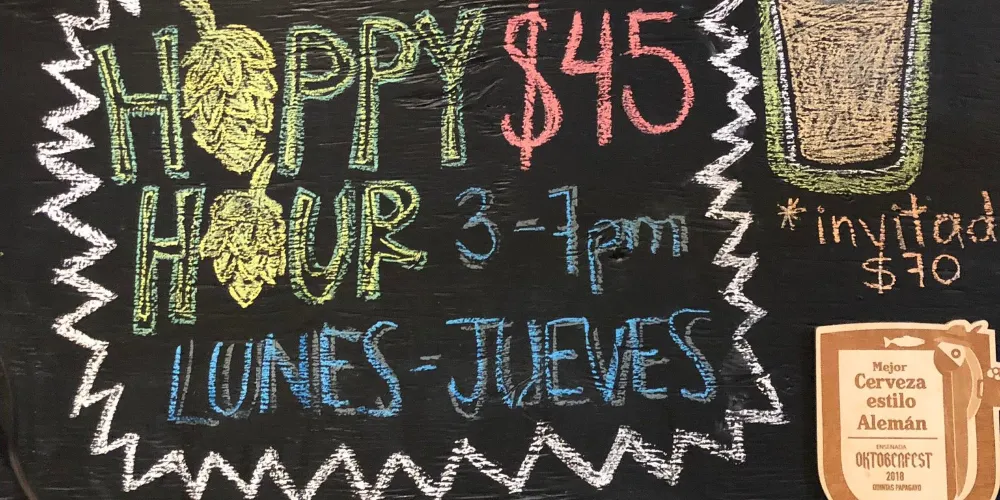 HAPPY $45
HOUR 3-7pm
LUNES-JUEVES
*invitad
$70
Mejor
Cerveza
estilo
Alemán
ENSENADA
OKTOBERFEST
2018
QUINTAS PAPAGAYO